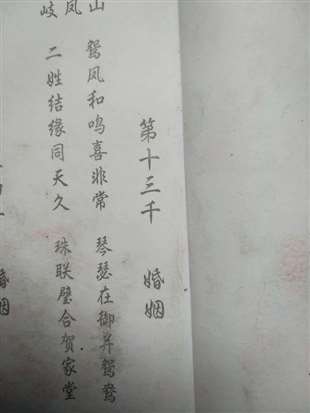 第十三千 婚姻
鸳凤和鸣喜非常 琴瑟在御并鸳鸯
二姓结缘同天久 珠联璧合贺家堂
山
凤
岐
婚姻